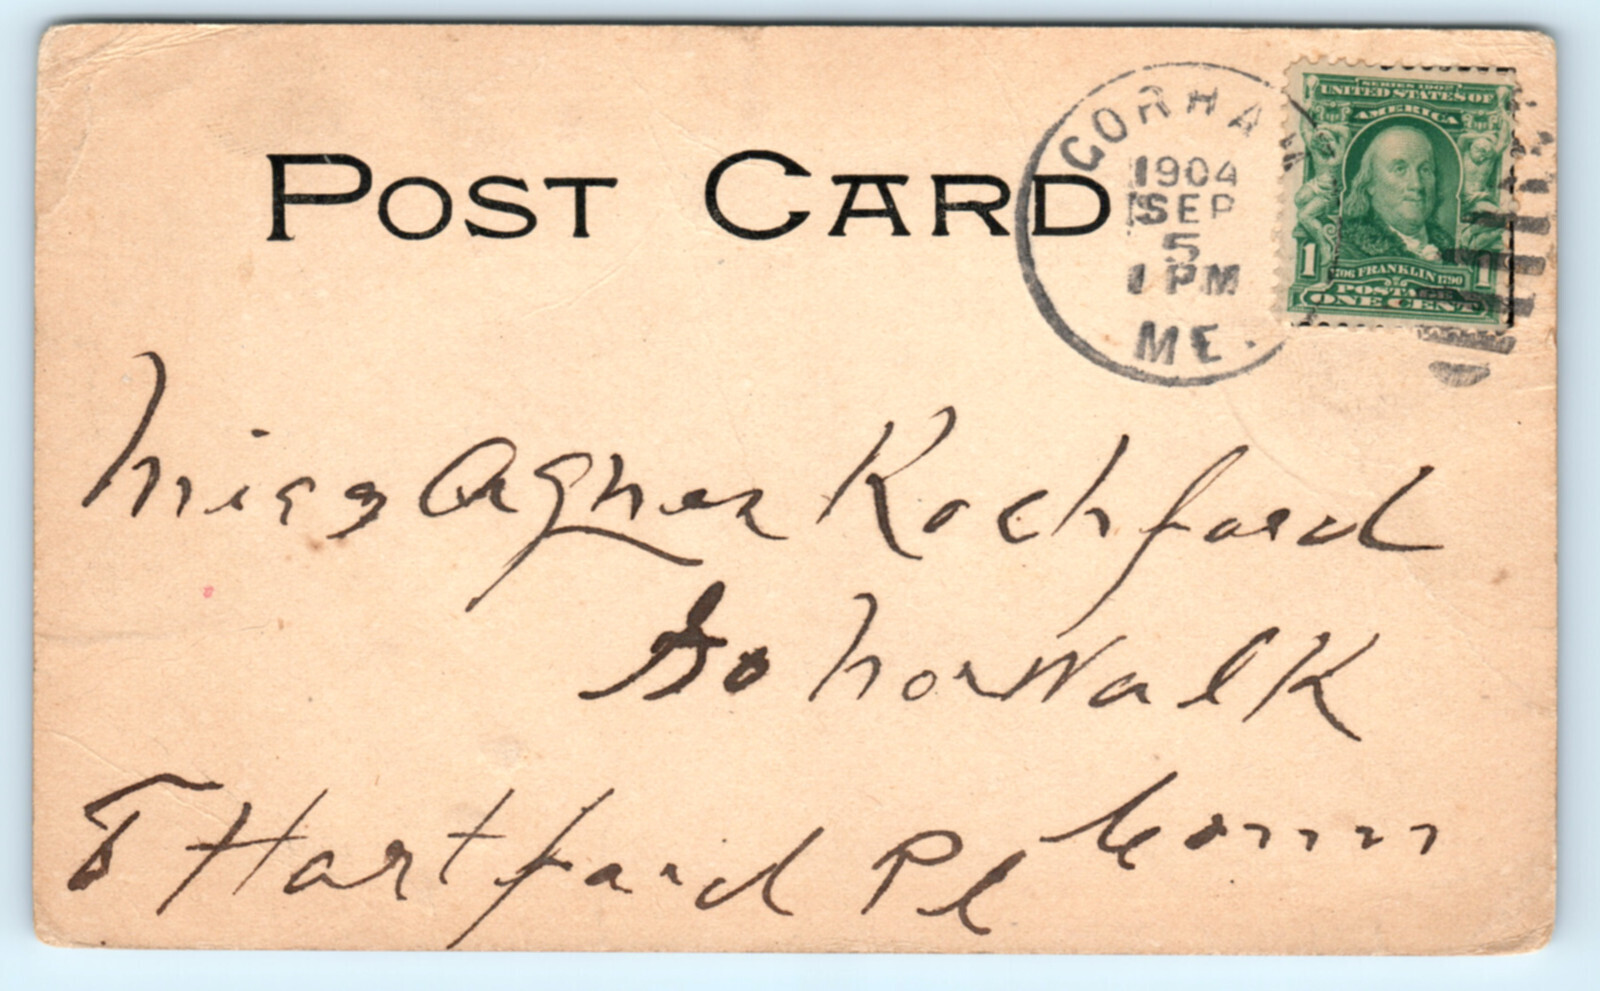 POST CARD
GORHAM
1904
SEP
5
1 PM
ME.
SERIES 1902
UNITED STATES OF
AMERICA
1 1
1706 FRANKLIN 1790
POSTAGE
ONE CENT
Miss Agnes Rochford
So Norwalk
Hartford Pl Conn